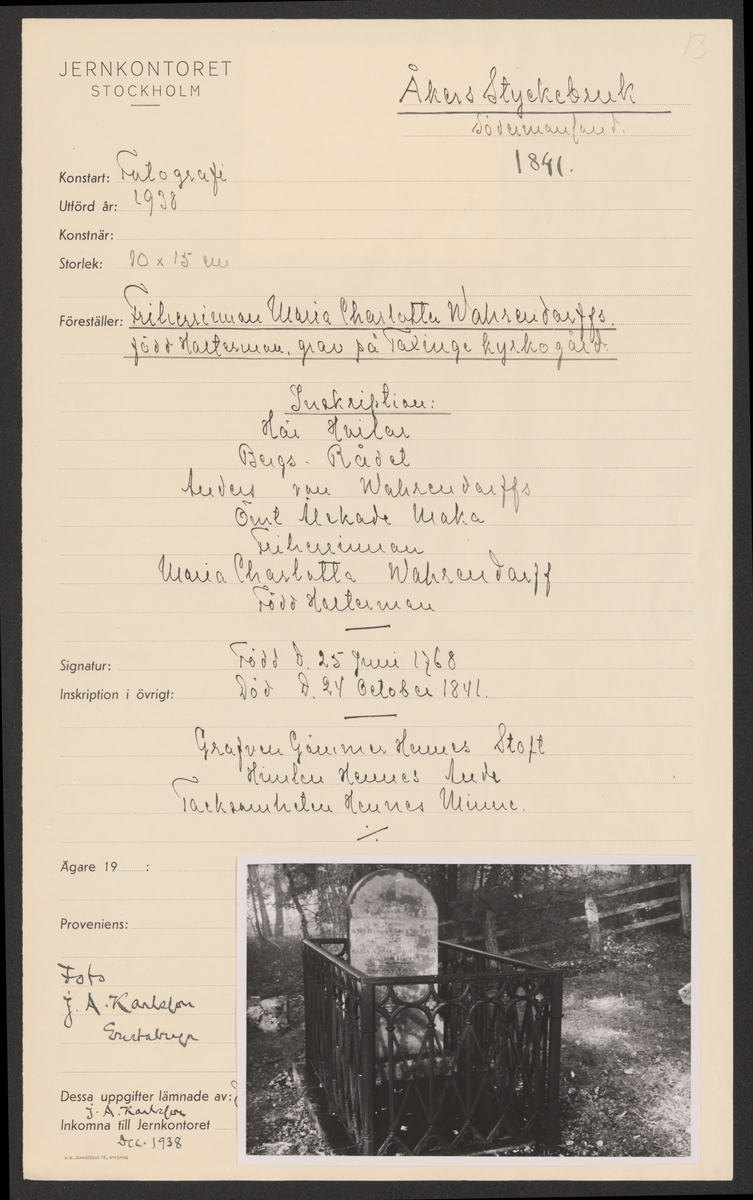 13
JERNKONTORET
STOCKHOLM
Åkers Styckebruk
Södermanland.
1841.
Konstart: Fotografi
Utförd år: 1938
Konstnär:
Storlek: 10 x 15 cm
Föreställer: Friherrinnan Maria Charlotta Wahrendorffs.
född Halterman. grav på Taxinge kyrkogård.
Inskription:
Här Hvilar
Bergs-Rådet
Anders von Wahrendorffs
Ömt Älskade Maka
Friherrinnan
Maria Charlotta Wahrendorff
Född Halterman
Född D. 25 Juni 1768
Signatur:
Död D. 24 October 1841.
Inskription i övrigt:
Grafven Gömmer Hennes Stoft
Himlen Hennes Ande
Tacksamheten Hennes Minne.
Ägare 19 :
Proveniens:
Foto
J. A. Karlsson
Dessa uppgifter lämnade av:
J. A. Karlsson
Inkomna till Jernkontoret
Dec. 1938